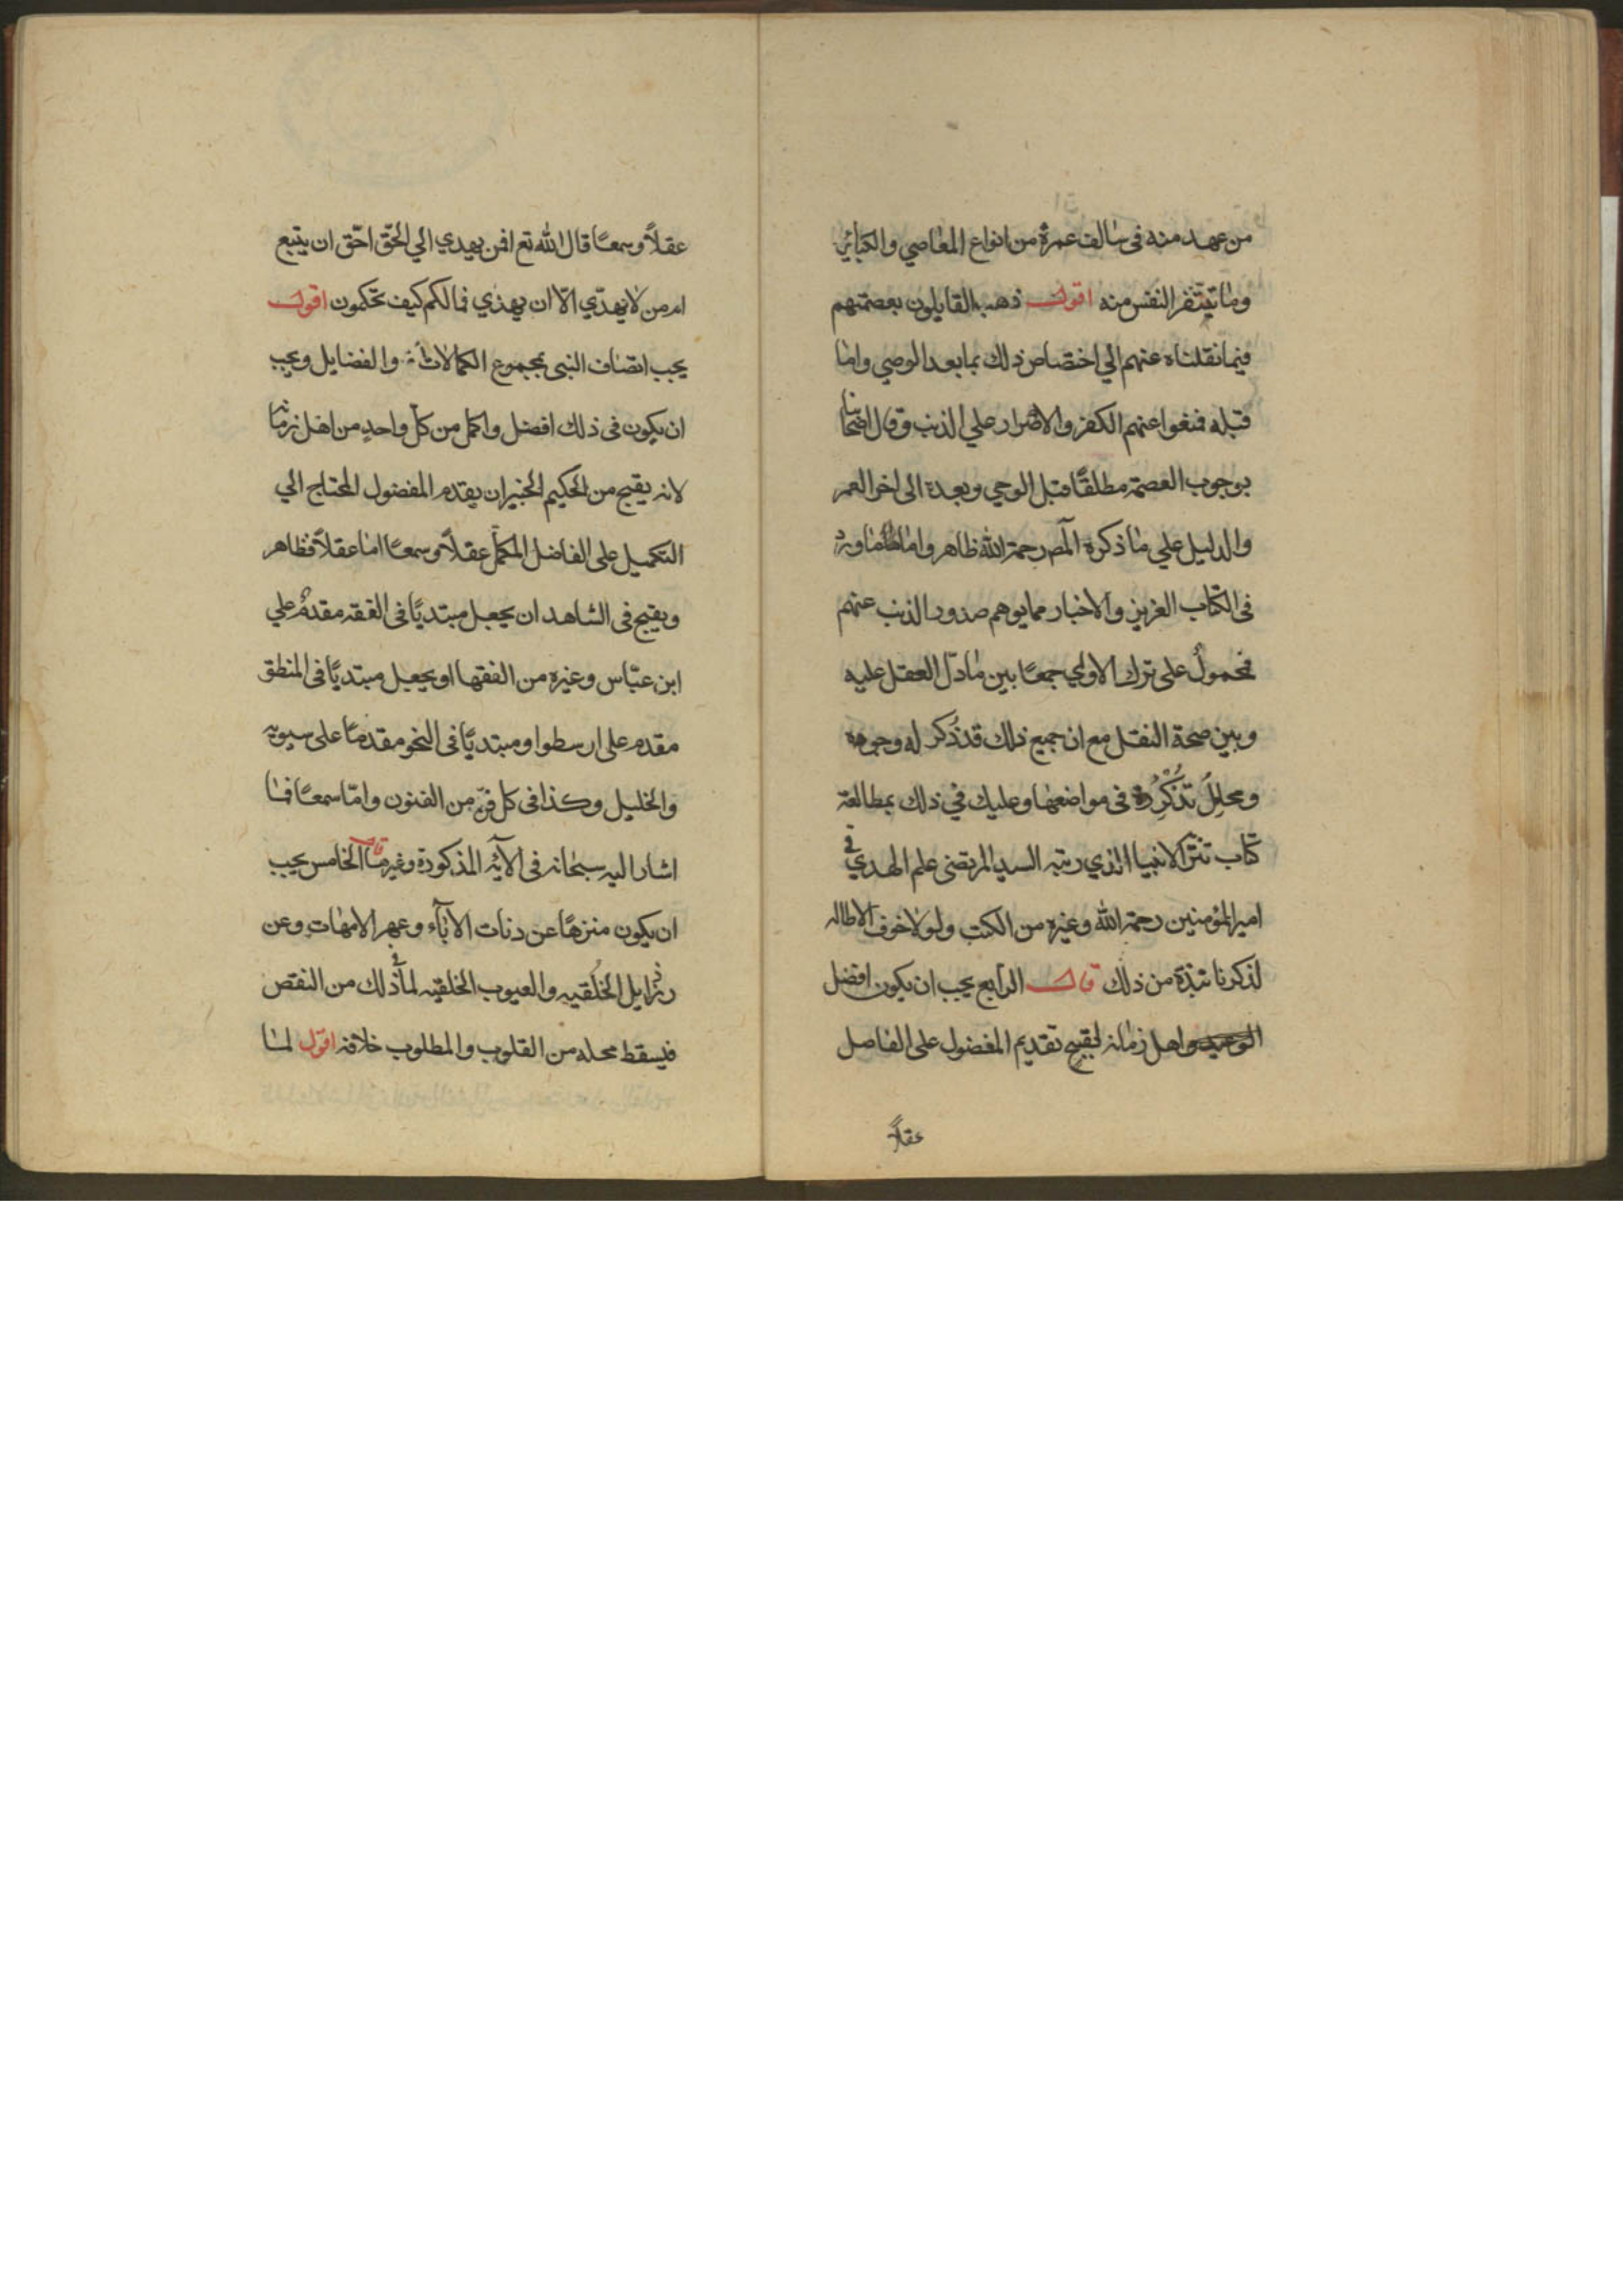 من عهد منه فى سالف عمره من انواع المعاصي والكبائر
وما تيتنفر النفس منه اقول ذهب القايلون بعصمتهم
فيما نقلناه عنهم الي اختصاص ذلك بما بعد الوحي واما
قبله فنغوا عنهم الكفر والاصرار علي الذنب وقال اصحابنا
بوجوب العصمة مطلقًا قبل الوحي وبعدة الى اخر العمر
والدليل علي ما ذكره المص رحمة الله ظاهر واما ما ورد
فى الكتاب العزيز والاخبار مما يوهم صدور الذنب عنهم
فمحمولٌ على ترك الاولي جمعًا بين ما دلّ العقل عليه
وبين صحة النقل مع ان جميع ذلك قد ذُكر له وجوه
ومحامِلُ فى مواضعها وعليك في ذلك بمطالعة
كتاب تنزّ الانبيا الذي رتبه السيد المرتضى علم الهدي في
امير المؤمنين رحمة الله وغيره من الكتب ولولا خوف الاطاله
لذكرنا نبذة من ذلك قال الرابع يجب ان يكون افضل
اهل زمانه لقبح تقديم المفضول على الفاصل
عقلاً
عقلاً وسمعًا قال الله تع افمن يهدي الي الحقّ احقّ ان يتبع
ام من لا يهدّي الاّ ان يهذي فمالكم كيف تحكمون اقول
يجب اتصاف النبى بجموع الكمالات والفضايل ويجب
ان يكون فى ذلك افضل واكمل من كلّ واحدٍ من اهل زمانه
لانه يقبح من الحكيم الخبير ان يقدم المفضول المحتاج الي
التكميل على الفاضل المكمّل عقلاً وسمعًا اما عقلاً فظاهر
ويقبح فى الشاهد ان يجعل مبتديًا فى الفقه مقدمٌ علي
ابن عبّاس وغيره من الفقها او يجعل مبتديًا فى المنطق
مقدم على ارسطو او مبتديًا فى النحو مقدمًا على سيبويه
والخليل وكذا فى كل فنّ من الفنون وامّا سمعًا فما
اشار اليه سبحانه فى الآيه المذكورة وغيرها قال الخامس يجب
ان يكون منزهًا عن دنات الاباء وعهر الامهات وعن
رذايل الخُلقيه والعيوب الخلقيه لما ذلك من النقص
فيسقط محله من القلوب والمطلوب خلافه اقول لما